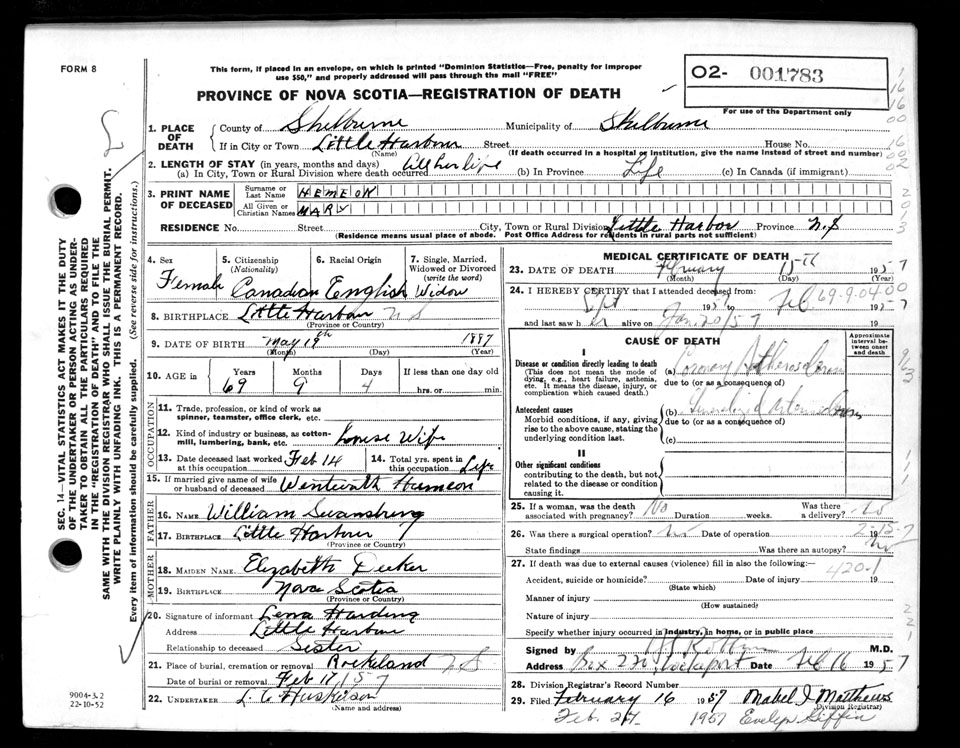 FORM 8
This form, if placed in an envelope, on which is printed "Dominion Statistics—Free, penalty for improper
use $50," and properly addressed will pass through the mail "FREE"
O2- 001783
For use of the Department only
PROVINCE OF NOVA SCOTIA—REGISTRATION OF DEATH
1. PLACE OF DEATH { County of Shelburne Municipality of Shelburne
If in City or Town Little Harbour Street House No.
(Name) (If death occurred in a hospital or institution, give the name instead of street and number)
2. LENGTH OF STAY (in years, months and days)
(a) In City, Town or Rural Division where death occurred All her life (b) In Province Life (c) In Canada (if immigrant)
3. PRINT NAME OF DECEASED { Surname or Last Name HEMEON
All Given or Christian Names MARY
RESIDENCE No. Street City, Town or Rural Division Little Harbor Province N.S
(Residence means usual place of abode. Post Office Address for residents in rural parts not sufficient)
4. Sex Female
5. Citizenship (Nationality) Canadian
6. Racial Origin English
7. Single, Married, Widowed or Divorced (write the word) Widow
8. BIRTHPLACE Little Harbour N S
(Province or Country)
9. DATE OF BIRTH May 19th 1887
(Month) (Day) (Year)
10. AGE in Years Months Days If less than one day old
69 9 4 hrs. or min.
OCCUPATION
11. Trade, profession, or kind of work as
spinner, teamster, office clerk, etc.
12. Kind of industry or business, as cotton-
mill, lumbering, bank, etc. House Wife
13. Date deceased last worked at this occupation Feb 14
14. Total yrs. spent in this occupation Life
15. If married give name of wife
or husband of deceased Wentworth Hemeon
FATHER
16. Name William Swansburg
17. Birthplace Little Harbour
(Province or Country)
MOTHER
18. Maiden Name Elizabeth Decker
19. Birthplace Nova Scotia
(Province or Country)
20. Signature of informant Lena Harding
Address Little Harbour
Relationship to deceased Sister
21. Place of burial, cremation or removal Rockland N S
Date of burial or removal Feb 17 / 57
22. Undertaker L. C. Huskilson
(Name and address)
9004-3.2
22-10-52
SEC. 14—VITAL STATISTICS ACT MAKES IT THE DUTY
OF THE UNDERTAKER OR PERSON ACTING AS UNDER-
TAKER TO OBTAIN ALL THE PARTICULARS REQUIRED
IN THE "REGISTRATION OF DEATH" AND TO FILE THE
SAME WITH THE DIVISION REGISTRAR WHO SHALL ISSUE THE BURIAL PERMIT.
WRITE PLAINLY WITH UNFADING INK. THIS IS A PERMANENT RECORD.
Every item of information should be carefully supplied. (See reverse side for instructions.)
MEDICAL CERTIFICATE OF DEATH
23. DATE OF DEATH February 15th 1957
(Month) (Day) (Year)
24. I HEREBY CERTIFY that I attended deceased from:
Sept 195 to Feb 1957
69-9-04 00
and last saw her alive on Jan 20/57 19
CAUSE OF DEATH
Approximate interval between onset and death
I
Disease or condition directly leading to death
(This does not mean the mode of
dying, e.g., heart failure, asthenia,
etc. It means the disease, injury, or
complication which caused death.)
(a) Coronary
due to (or as a consequence of)
Antecedent causes
Morbid conditions, if any, giving
rise to the above cause, stating the
underlying condition last.
(b)
due to (or as a consequence of)
(c)
II
Other significant conditions
contributing to the death, but not
related to the disease or condition
causing it.
25. If a woman, was the death associated with pregnancy? No Duration weeks. Was there a delivery? No
26. Was there a surgical operation? No Date of operation 19
2-15-7
State findings Was there an autopsy? No
27. If death was due to external causes (violence) fill in also the following:—
420-1
Accident, suicide or homicide? Date of injury 19
(State which)
Manner of injury
(How sustained)
Nature of injury
Specify whether injury occurred in industry, in home, or in public place
Signed by M.D.
Address Box 220 Lockeport Date Feb 16 1957
28. Division Registrar's Record Number
29. Filed February 16 1957 Mabel I. Matthews
(Division Registrar)
Feb. 27. 1957 Evelyn Giffin